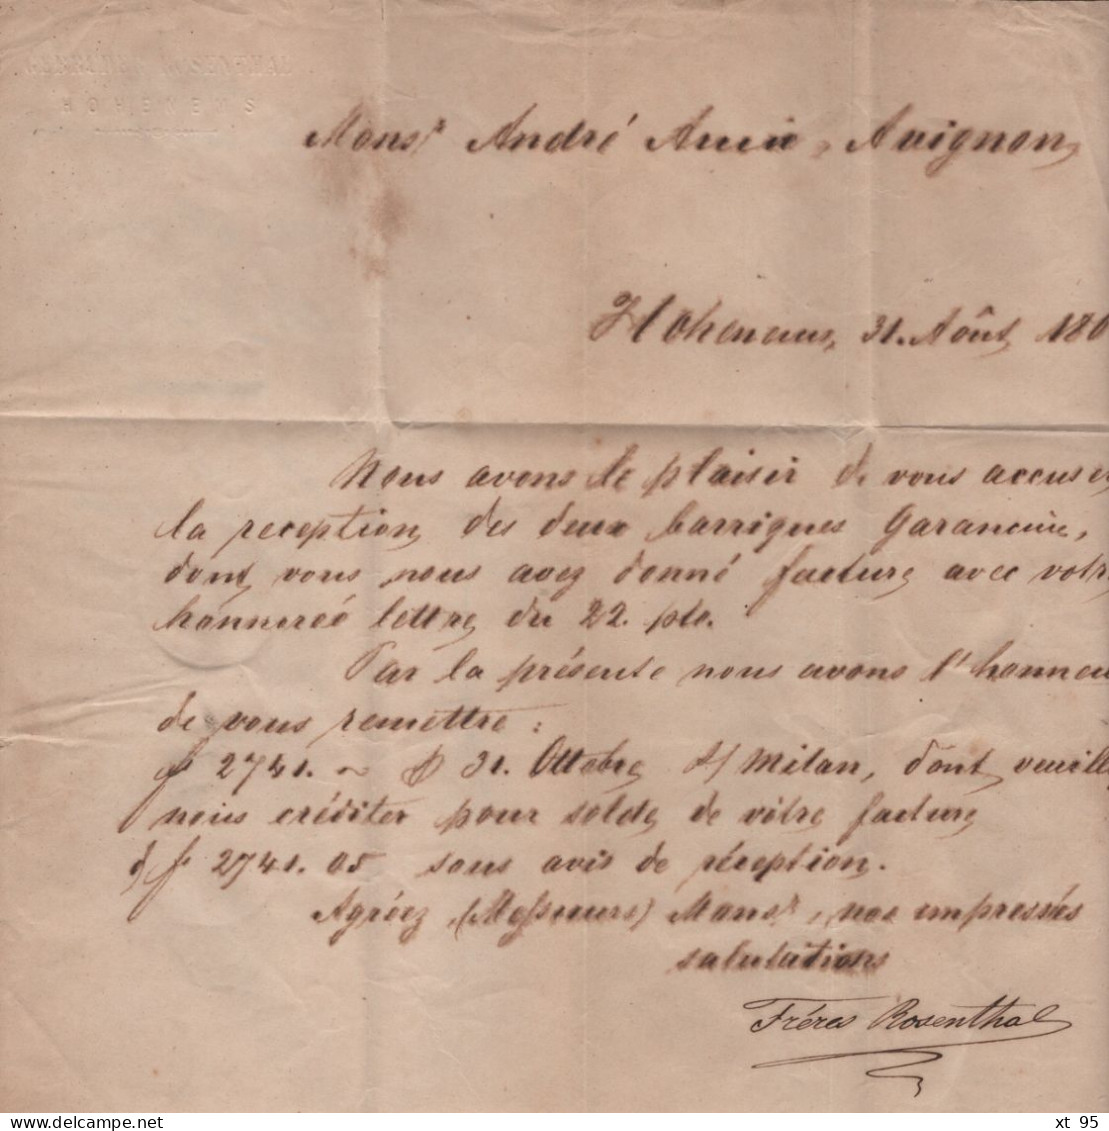 GEBRÜDER ROSENTHAL
HOHENEMS
Monsr. André Amic, Avignon
Hohenems, 31. Août 186
Nous avons le plaisir de vous accuser
la reception des deux barriques Garancine,
dont vous nous avez donné facture avec votre
honnoreé lettre du 22. pto.
Par la présente nous avons l'honneu
de vous remettre:
f 2741. ~ p 31. Ottobre s/ Milan, dont veuill
nous créditer pour solde de vôtre facture
d/ f 2741.05 sous avis de réception.
Agréez (Messieurs) Monsr., nos empressés
salutations
Fréres Rosenthal
xt 95